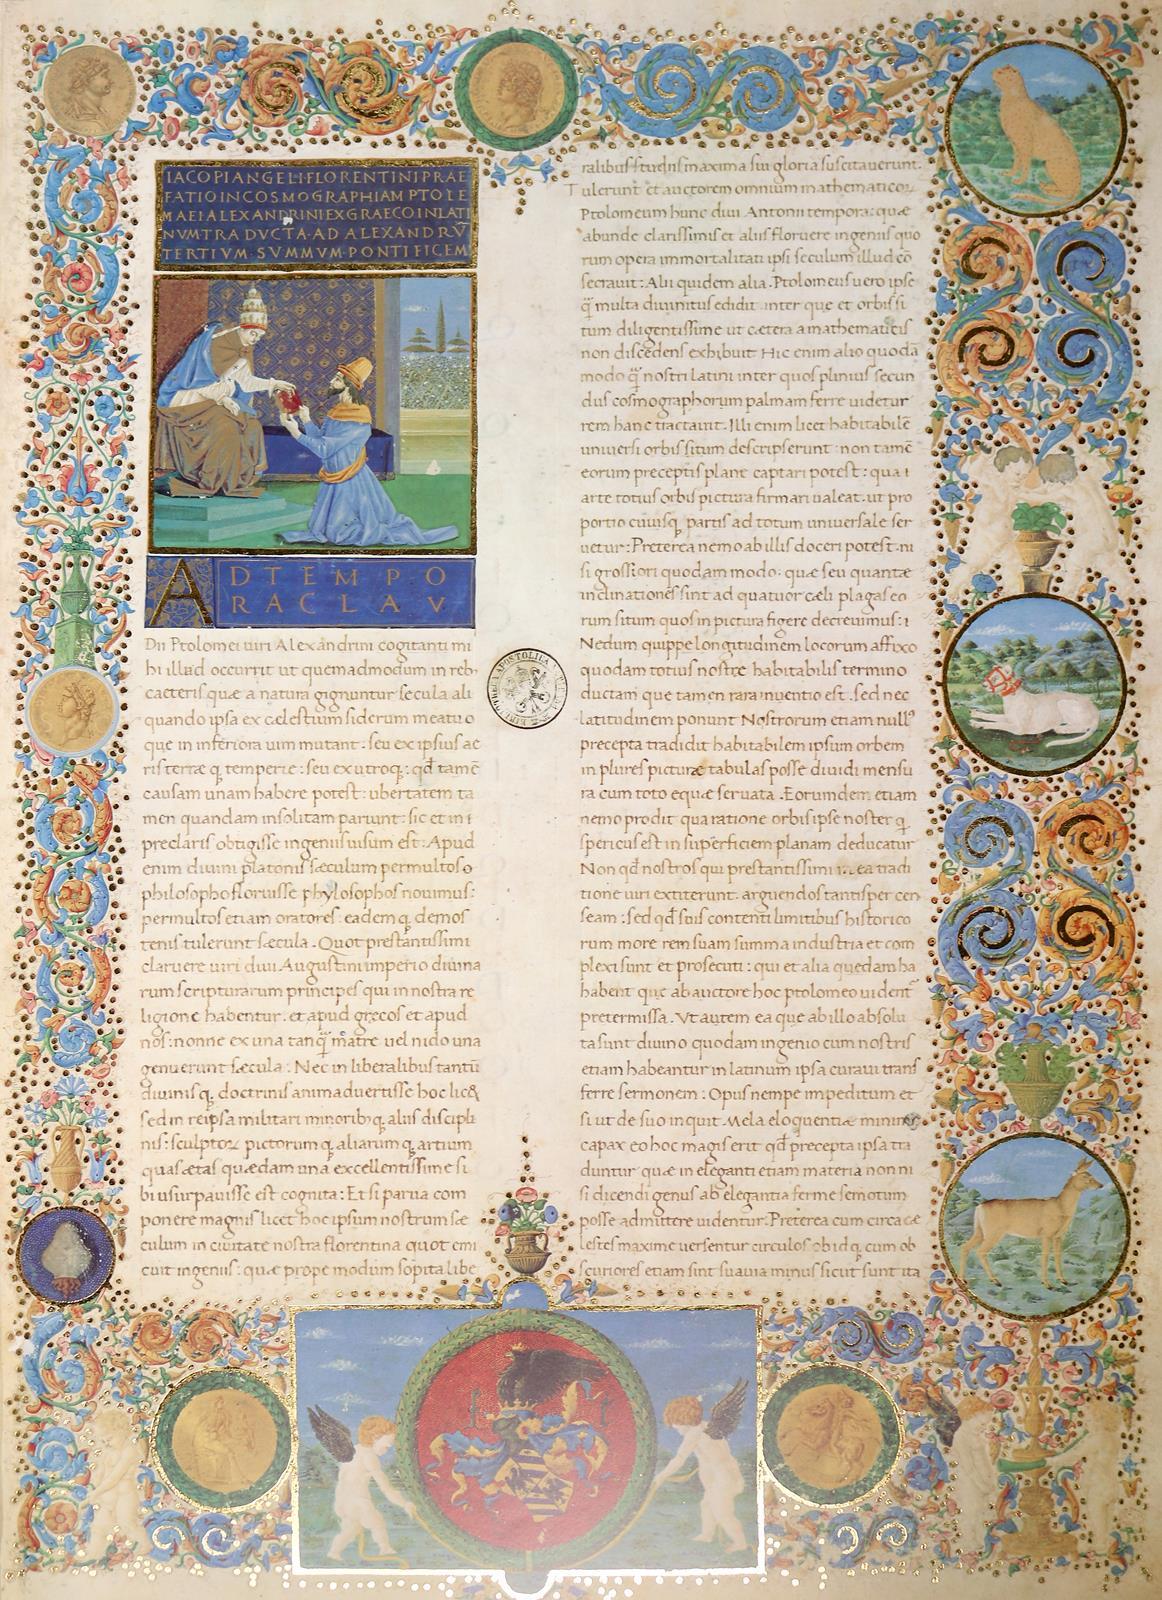 IACOPI ANGELI FLORENTINI PRAE
FATIO IN COSMOGRAPHIAM PTOLE
MAEI ALEXANDRINI EX GRAECO IN LATI
NVM TRADVCTA·AD ALEXANDRV̄
TERTIVM·SVMMVM·PONTIFICEM
AD TEMPO
RA CLAV
Dii Ptolomei uiri Alexandrini cogitanti mi
hi illud occurrit ut quemadmodum in reb᾽
caeteris quæ a natura gignuntur secula ali
quando ipsa ex cælestium siderum meatu o
que in inferiora uim mutant: seu ex ipsius ae
ris terræ q; temperie: seu ex utroq;: qd̄ tamē
causam unam habere potest: ubertatem ta
men quandam insolitam pariunt: sic et in i
preclaris obtigisse ingeniis uisum est: Apud
enim diuini platonis sæculum permultos o
philosopho floruisse phylosophos nouimus:
permultos etiam oratores: eadem q, demos
tenis tulerunt sæcula. Quot prestantissimi
claruere uiri diui Augustini imperio diuina
rum scripturarum principes qui in nostra re
ligione habentur. et apud grecos et apud
nos: nonne ex una tanq̄ matre uel nido una
genuerunt sæcula. Nec in liberalibus tantū
diuinis q, doctrinis animaduertisse hoc lice&
sed in reipsa militari minorib q, aliis discipli
nis: sculptorꝝ pictorum q, aliarum q, artium
quas ætas quædam una excellentissime si
bi usurpauisse est cognita: Et si parua com
ponere magnis licet hoc ipsum nostrum sæ
culum in ciuitate nostra florentina quot emi
cuit ingeniis: quæ prope modum sopita libe
ralibus studiis maxima sui gloria suscitauerunt.
Tulerunt et auctorem omnium mathematicorꝝ
Ptolomeum hunc diui Antonii tempora: quæ
abunde clarissimis et aliis floruere ingeniis quo
rum opera immortalitati ipsi seculum illud cō
secrauit: Alii quidem alia. Ptolomeus uero ipse
q̄ multa diuinitus edidit. inter que et orbis si
tum diligentissime ut cætera a mathematicis
non discedens exhibuit Hic enim alio quodā
modo q̄ nostri latini inter quos plinius secun
dus cosmographorum palmam ferre uidetur
rem hanc tractauit. Illi enim licet habitabilē
uniuersi orbis situm descripserunt: non tamē
eorum preceptis plane captari potest: qua i
arte totius orbis pictura firmari ualeat. ut pro
portio cuiusq; partis ad totum uniuersale ser
uetur: Preterea nemo ab illis doceri potest. ni
si grossiori quodam modo: quæ seu quantæ
inclinationes sint ad quatuor cæli plagas eo
rum situm quos in pictura figere decreuimus: i
Nedum quippe longitudinem locorum affixo
quodam totius nostre habitabilis termino
ductam que tamen rara inuentio est. sed nec
latitudinem ponunt Nostrorum etiam null᾽
precepta tradidit habitabilem ipsum orbem
in plures picturæ tabulas posse diuidi mensu
ra cum toto equæ seruata. Eorumdem etiam
nemo prodit qua ratione orbis ipse noster q
spericus est in superficiem planam deducatur
Non qd̄ nostros qui prestantissimi in ea tradi
tione uiri extiterunt. arguendos tantisper cen
seam: sed qd̄ suis contenti limitibus historico
rum more rem suam summa industria et com
plexi sunt et prosecuti: qui et alia quedam ha
habent que ab auctore hoc ptolomeo uident
pretermissa. Vt autem ea que ab illo absolu
ta sunt diuino quodam ingenio cum nostris
etiam habeantur in latinum ipsa curaui trans
ferre sermonem: Opus nempe impeditum et
si ut de suo inquit. Mela eloquentiæ minime
capax eo hoc magis erit qd̄ precepta ipsa tra
duntur quæ in eleganti etiam materia non ni
si dicendi genus ab elegantia ferme semotum
posse admittere uidentur. Preterea cum circa cæ
lestes maxime uersentur circulos ob id q, cum ob
scuriores etiam sint suauia minus sicut sunt ita